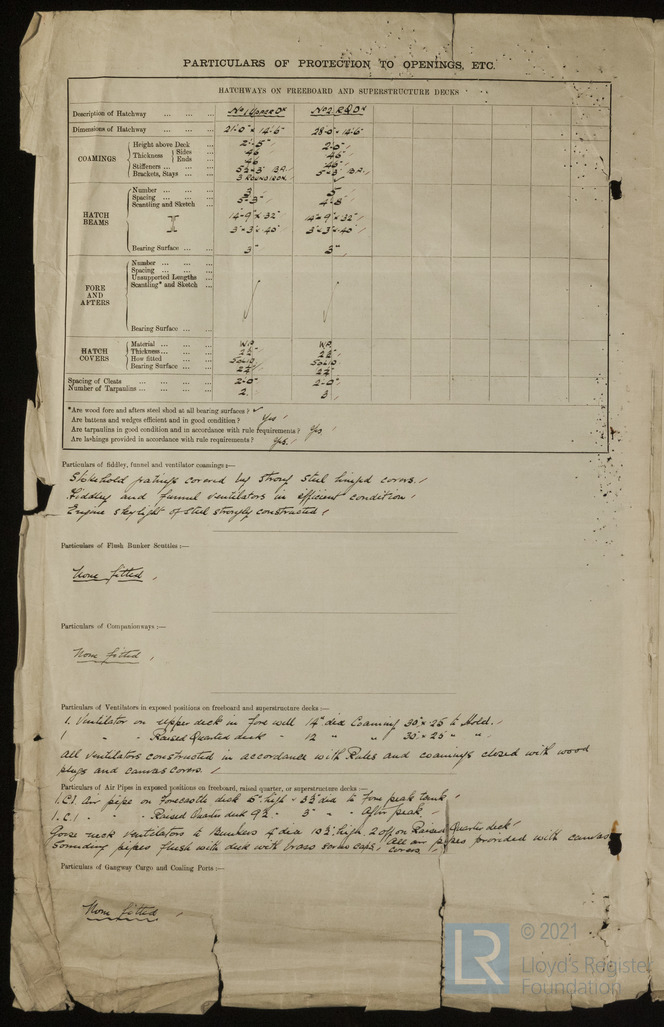 PARTICULARS OF PROTECTION TO OPENINGS, ETC.
HATCHWAYS ON FREEBOARD AND SUPERSTRUCTURE DECKS
Description of Hatchway ... ... ... No 1 Upper Dk No 2 R.Q.Dk
Dimensions of Hatchway ... ... ... 21'-0" x 14'-6" 28'-0" x 14'-6"
COAMINGS
Height above Deck ... 2'-5" 2'-0"
Thickness { Sides ... .46 .46
Ends ... .46 .46
Stiffeners ... ... ... B.A. B.A.
Brackets, Stays ... ... 3 Round Iron
HATCH BEAMS
Number ... ... ... 3 5
Spacing ... ... ... 5'-3" 4'-8"
Scantling and Sketch ... 14'-9" x 32" 14'-9" x 32"
3" x 3" x .40" 3" x 3" x .40"
Bearing Surface ... ... 3" 3"
FORE AND AFTERS
Number ... ... ...
Spacing ... ... ...
Unsupported Lengths ...
Scantling* and Sketch ...
Bearing Surface ... ...
HATCH COVERS
Material ... ... ... W.P. W.P.
Thickness ... ... ... 2½" 2½"
How fitted ... ... ... Solid Solid
Bearing Surface ... ...
Spacing of Cleats ... ... ... ... 2'-0" 2'-0"
Number of Tarpaulins ... ... ... ... 2 3
*Are wood fore and afters steel shod at all bearing surfaces? ✓
Are battens and wedges efficient and in good condition? Yes
Are tarpaulins in good condition and in accordance with rule requirements? Yes
Are lashings provided in accordance with rule requirements? Yes.
Particulars of fiddley, funnel and ventilator coamings:—
Stokehold gratings covered by strong steel hinged covers.
Fiddley and funnel ventilators in efficient condition
Engine skylight of steel strongly constructed
Particulars of Flush Bunker Scuttles:—
None fitted
Particulars of Companionways:—
None fitted
Particulars of Ventilators in exposed positions on freeboard and superstructure decks:—
1. Ventilator on upper deck in fore well 14" dia Coaming 30" x .25 to Hold.
1 " " Raised Quarter deck " 12 " " 30" x .25 " "
All ventilators constructed in accordance with Rules and coamings closed with wood
plugs and canvas covers.
Particulars of Air Pipes in exposed positions on freeboard, raised quarter, or superstructure decks:—
1. C.I. Air pipe on Forecastle deck 5" high - 3½" dia to Fore peak tank
1. C.I. " " Raised Quarter deck 9½ - 3" " After peak
Goose neck Ventilators to Bunkers 4" dia high, 2 off on Raised Quarter deck
Sounding pipes flush with deck with brass screw caps. All air pipes provided with canvas
covers.
Particulars of Gangway Cargo and Coaling Ports:—
None fitted
LR
© 2021
Lloyd's Register
Foundation